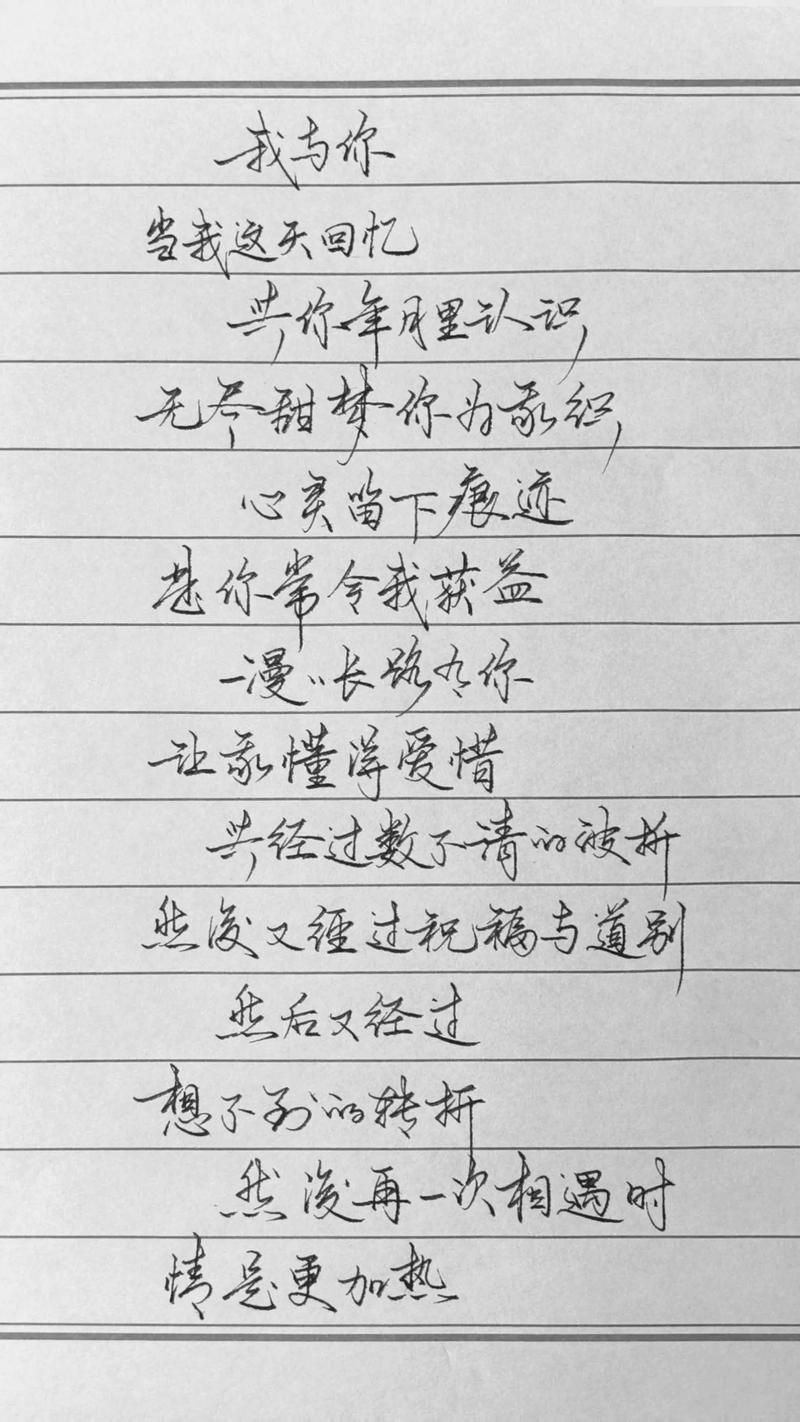 我与你
当我这天回忆
共你年月里认识
无尽甜梦你为我织
心灵留下痕迹
是你常令我获益
漫漫长路有你
让我懂得爱惜
共经过数不清的波折
然後又經过祝福与道别
然后又经过
想不到的转折
然後再一次相遇时
情是更加热